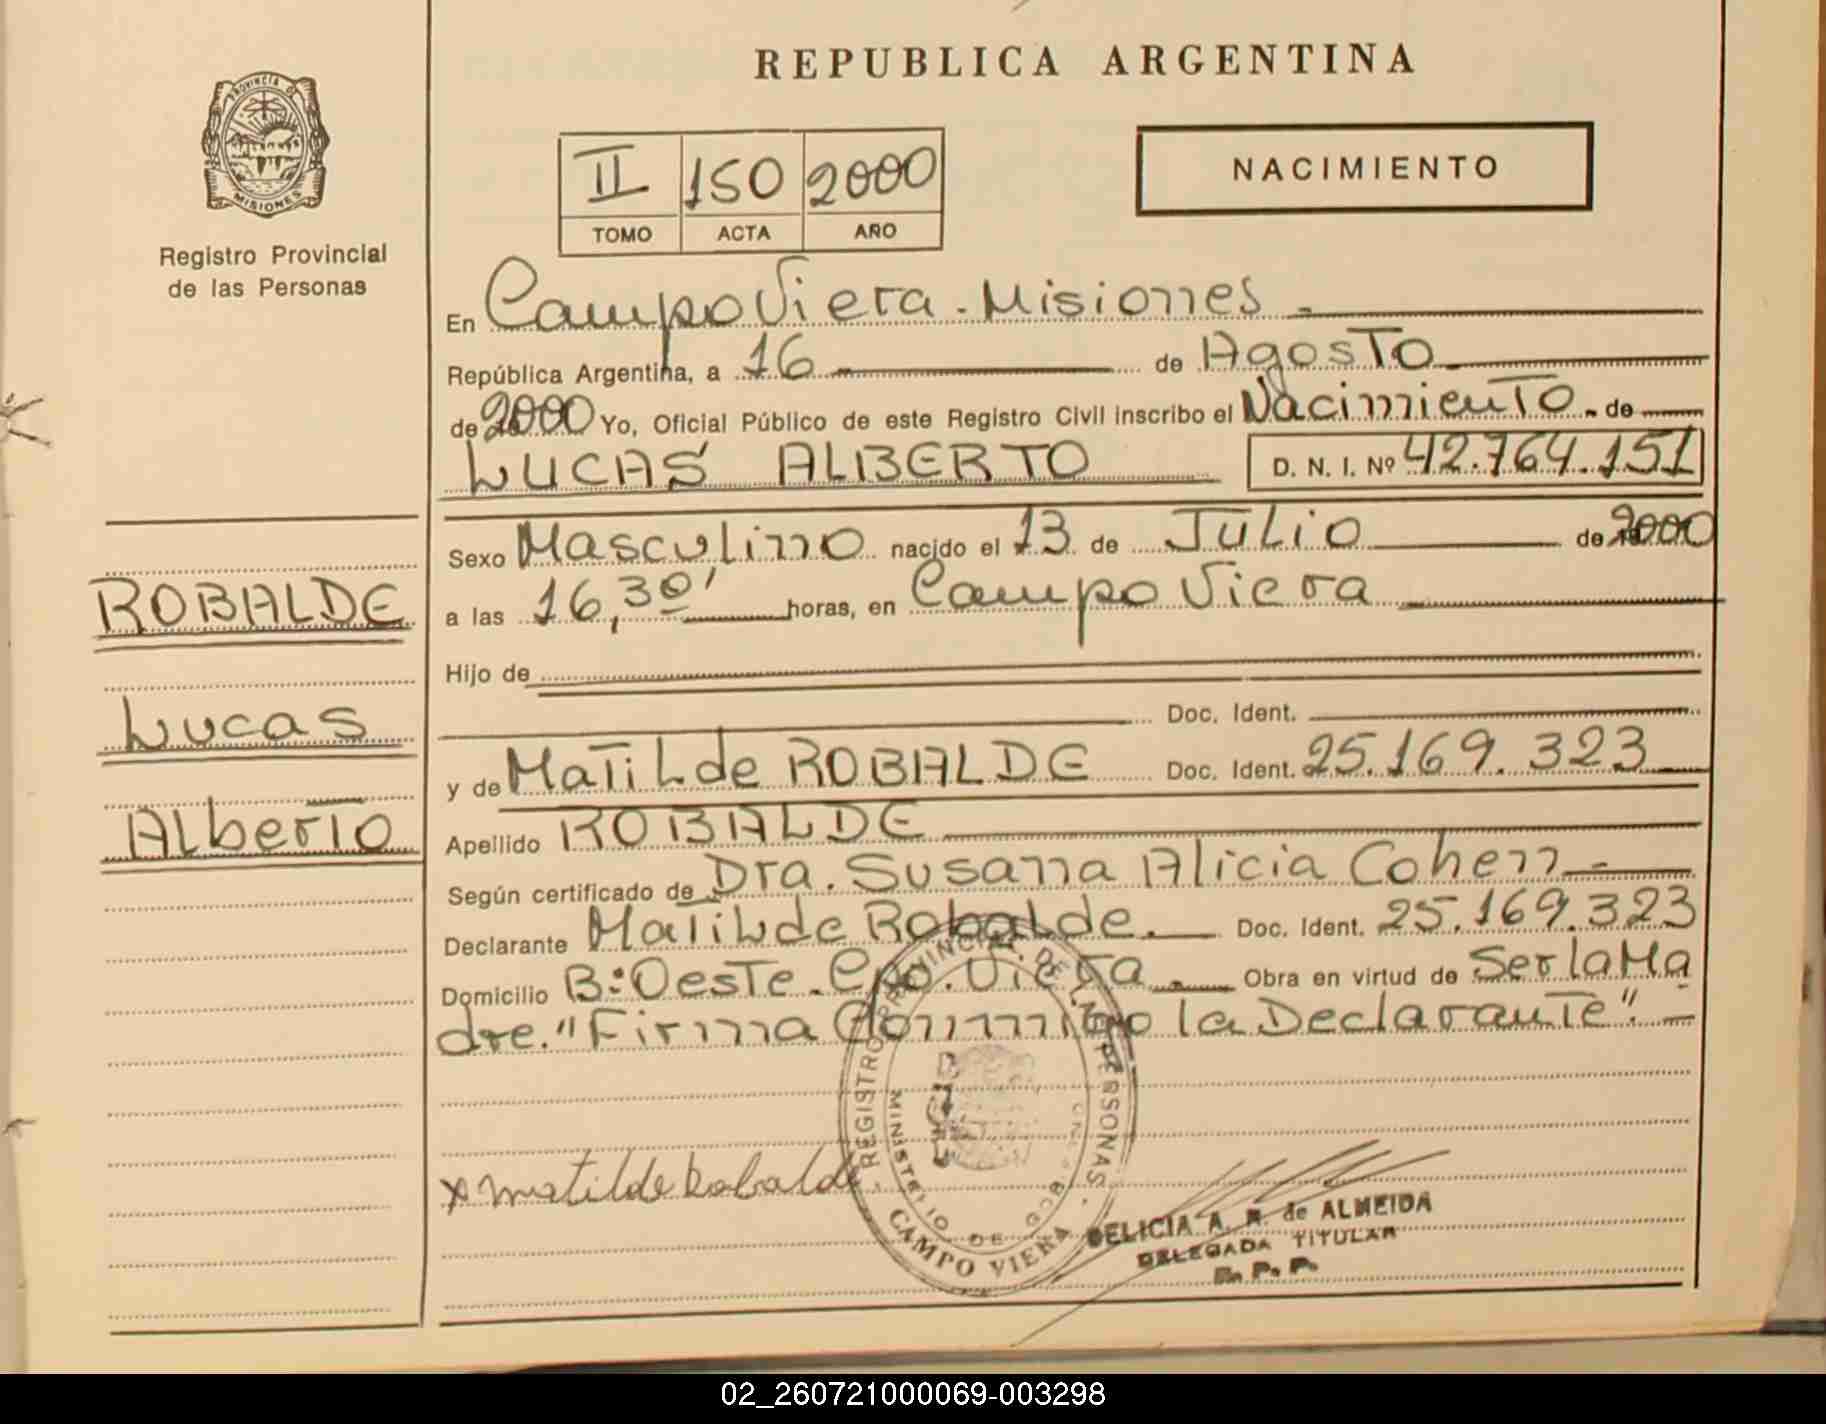 REPUBLICA ARGENTINA
PROVINCIA DE
MISIONES
Registro Provincial
de las Personas
II 150 2000
TOMO ACTA AÑO
NACIMIENTO
En Campo Viera - Misiones -
República Argentina, a 16 de Agosto
de 2000 Yo, Oficial Público de este Registro Civil inscribo el Nacimiento - de
LUCAS ALBERTO D. N. I. Nº 42.764.151
Sexo Masculino nacido el 13 de JULIO de 2000
a las 16,30' horas, en Campo Viera
Hijo de
Doc. Ident.
y de Matilde ROBALDE Doc. Ident. 25.169.323
Apellido ROBALDE
Según certificado de Dra. Susana Alicia Cohen -
Declarante Matilde Robalde. Doc. Ident. 25.169.323
Domicilio B:Oeste. Cpo. Viera. Obra en virtud de Ser la Ma
dre. "Firma Conmigo la Declarante". -
ROBALDE
Lucas
Alberto
x matilde Robalde
REGISTRO PROVINCIAL DE LAS PERSONAS
MINISTERIO DE GOB
CAMPO VIERA
DELICIA A. R. de ALMEIDA
DELEGADA TITULAR
R. P. P.
02_260721000069-003298